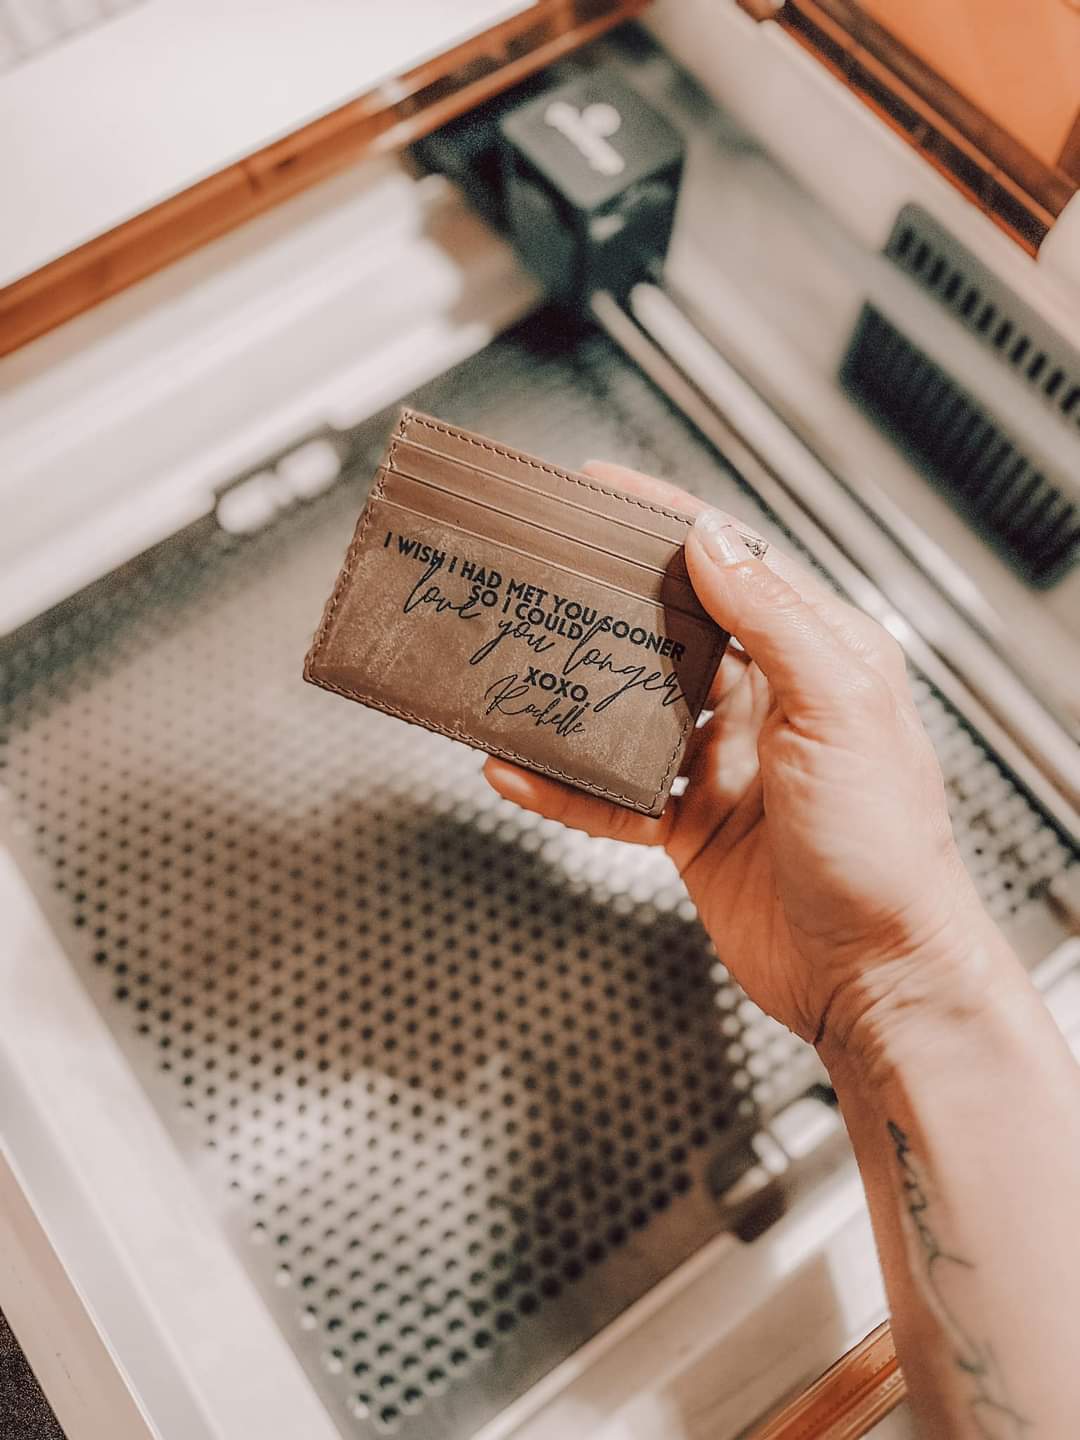 I WISH I HAD MET YOU SOONER
SO I COULD
love you longer
XOXO,
Rochelle
and